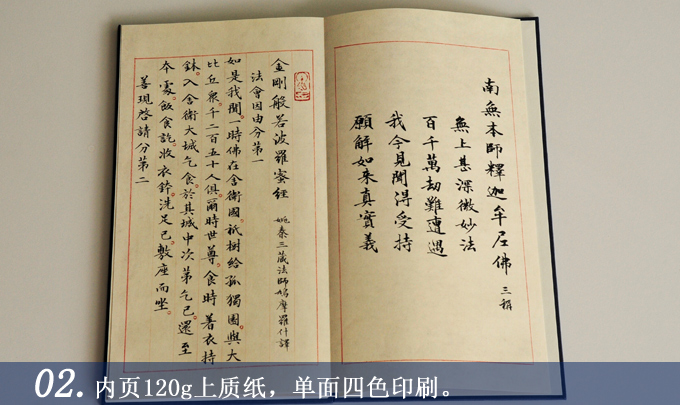 南無本師釋迦牟尼佛 三稱
無上甚深微妙法
百千萬劫難遭遇
我今見聞得受持
願解如来真實義
金剛般若波羅蜜經
法會因由分第一 姚秦三藏法師鳩摩羅什譯
如是我聞。一時佛在舍衛國。祇樹給孤獨園。與大
比丘衆。千二百五十人俱。爾時世尊。食時著衣持
鉢。入舍衛大城乞食。於其城中次第乞已。還至
本處。飯食訖。收衣鉢。洗足已。敷座而坐。
善現啓請分第二
02. 内页120g上质纸，单面四色印刷。